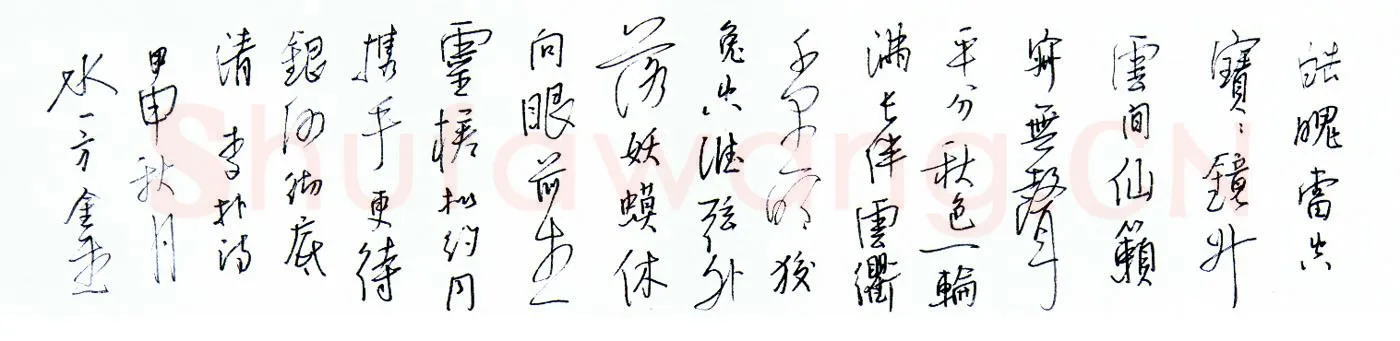 皓魄當空
寶鏡升
雲间仙籟
寂無聲
平分秋色一輪
滿长伴雲衢
千里明狡
兔空從弦外
落妖蟆休
向眼前生
靈槎拟约同
携手更待
銀河彻底
清 李朴诗
甲申秋月
水一方金
Shufawang.CN